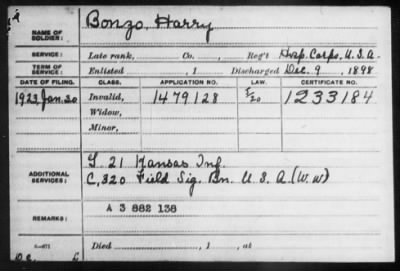 NAME OF SOLDIER: Bonzo, Harry
SERVICE: Late rank, Co. , Reg't Hosp. Corps, U.S.A.
TERM OF SERVICE: Enlisted , 1 Discharged Dec. 9 , 1898
DATE OF FILING. CLASS. APPLICATION NO. LAW. CERTIFICATE NO.
1923, Jan. 20 Invalid, 1479128 1233184
Widow,
Minor,
ADDITIONAL SERVICES: 21 Kansas Inf.
C, 320 Field Sig. Bn. U.S.A. (W.W)
REMARKS: A 3 882 138
Died , 1 , at